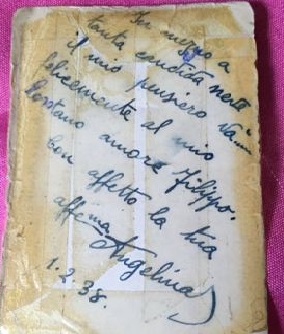 In mezzo a
tanta candida
il mio pensiero va
felicemente al mio
lontano amore Filippo.
Con affetto la tua
affe.ma Angelina
1.2.38.